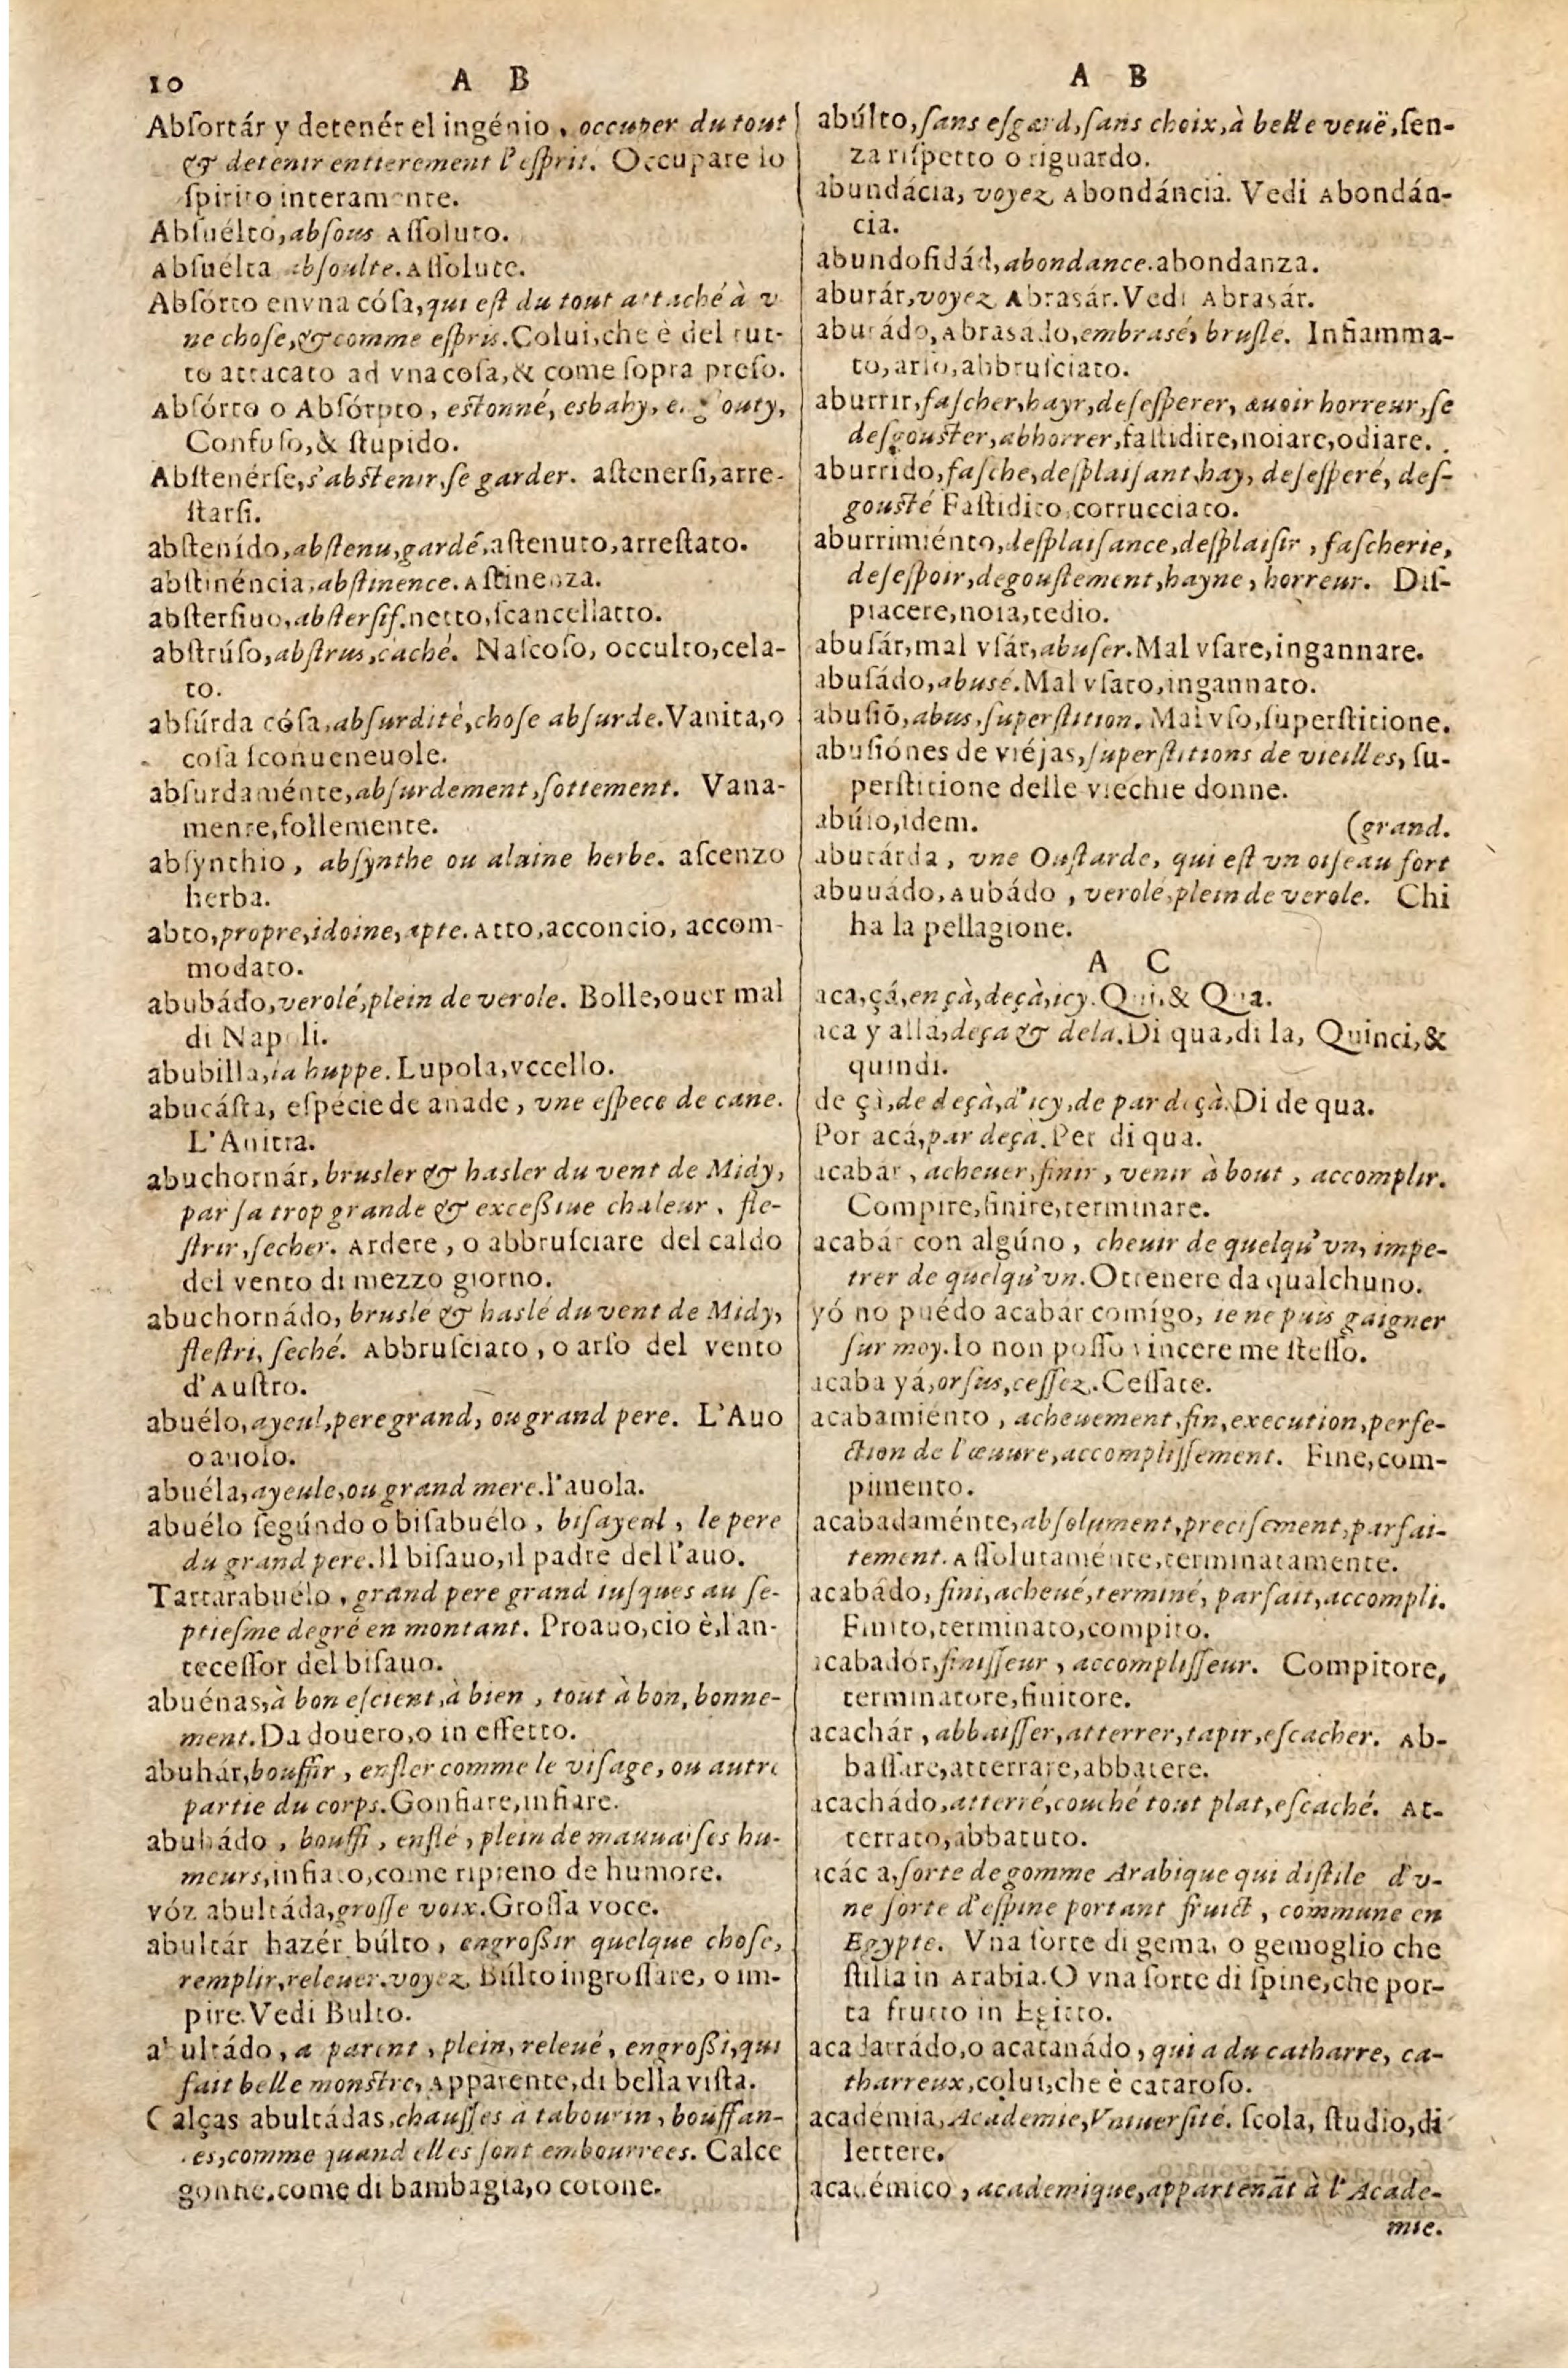 10 A B
Abſortár y detenér el ingénio, occuper du tout
& detenir entierement l'eſprit. Occupare lo
ſpirito interamente.
Abſuélto, abſous Aſſoluto.
Abſuélta abſoulte. Aſſolute.
Abſórto en vna cóſa, qui eſt du tout attaché à v-
ne choſe, & comme eſpris. Colui, che è del tut-
to attacato ad vna coſa, & come ſopra preſo.
Abſórto o Abſórpto, eſtonné, esbahy,
Confuſo, & ſtupido.
Abſtenérſe, s'abſtenir, ſe garder. aſtenerſi, arre-
ſtarſi.
abſtenído, abſtenu, gardé, aſtenuto, arreſtato.
abſtinéncia, abſtinence. Aſtinenza.
abſterſiuo, abſterſif. netto, ſcancellatto.
abſtrúſo, abſtrus, caché. Naſcoſo, occulto, cela-
to.
abſúrda cóſa, abſurdité, choſe abſurde. Vanita, o
coſa ſconueneuole.
abſurdaménte, abſurdement, ſottement. Vana-
mente, follemente.
abſynthio, abſynthe ou aluine herbe. aſcenzo
herba.
abto, propre, idoine, apte. Atto, acconcio, accom-
modato.
abubádo, verolé, plein de verole. Bolle, ouer mal
di Napoli.
abubilla, la huppe. Lupola, vccello.
abucáſta, eſpécie de anade, vne eſpece de cane.
L'Anitra.
abuchornár, brusler & hasler du vent de Midy,
par ſa trop grande & exceßiue chaleur, fle-
ſtrir, ſecher. Ardere, o abbruſciare del caldo
del vento di mezzo giorno.
abuchornádo, brusle & haslé du vent de Midy,
fleſtri, ſeché. Abbruſciato, o arſo del vento
d'Auſtro.
abuélo, ayeul, pere grand, ou grand pere. L'Auo
o auolo.
abuéla, ayeule, ou grand mere. l'auola.
abuélo ſegúndo o biſabuélo, biſayeul, le pere
du grand pere. Il biſauo, il padre dell'auo.
Tartarabuélo, grand pere grand iuſques au ſe-
ptieſme degré en montant. Proauo, cio è, l'an-
teceſſor del biſauo.
abuénas, à bon eſcient, à bien, tout à bon, bonne-
ment. Da douero, o in effetto.
abuhár, bouffir, enfler comme le viſage, ou autre
partie du corps. Gonfiare, infiare.
abuhádo, bouffi, enflé, plein de mauuaiſes hu-
meurs, infiato, come ripieno de humore.
vóz abultáda, groſſe voix. Groſſa voce.
abultár hazér búlto, engroßir quelque choſe,
remplir, releuer. voyez Búlto ingroſſare, o im-
pire. Vedi Bulto.
abultádo, a parent, plein, releué, engroßi, qui
fait belle monſtre, Apparente, di bella viſta.
Calças abultádas, chauſſes à tabourin, bouffan-
tes, comme quand elles ſont embourrees. Calce
gonfie, come di bambagia, o cotone.
A B
abúlto, ſans eſgard, ſans choix, à belle veuë, ſen-
za riſpetto o riguardo.
abundácia, voyez Abondáncia. Vedi Abondán-
cia.
abundoſidád, abondance. abondanza.
aburár, voyez Abrasár. Vedi Abrasár.
aburádo, Abrasado, embrasé, bruſle. Infiamma-
to, arſo, abbruſciato.
aburrir, faſcher, hayr, deſeſperer, auoir horreur, ſe
deſgouſter, abhorrer, faſtidire, noiare, odiare.
aburrido, faſche, deſplaiſant, hay, deſeſperé, deſ-
gouſté Faſtidito, corrucciato.
aburrimiénto, deſplaiſance, deſplaiſir, faſcherie,
deſeſpoir, degouſtement, hayne, horreur. Diſ-
piacere, noia, tedio.
abuſár, mal vſár, abuſer. Mal vſare, ingannare.
abuſádo, abusé. Mal vſato, ingannato.
abuſiõ, abus, ſuperſtition. Mal vſo, ſuperſtitione.
abuſiónes de viéjas, ſuperſtitions de vieilles, ſu-
perſtitione delle viechie donne.
abúſo, idem. (grand.
abutárda, vne Ouſtarde, qui eſt vn oiſeau fort
abuuádo, Aubádo, verolé, plein de verole. Chi
ha la pellagione.
A C
aca, çá, en çà, deçà, icy. Qui, & Qua.
aca y alla, deça & dela. Di qua, di la, Quinci, &
quindi.
de çà, de deçà, d'icy, de par deçà. Di de qua.
Por acá, par deçà. Per di qua.
acabar, acheuer, finir, venir à bout, accomplir.
Compire, finire, terminare.
acabár con algúno, cheuir de quelqu'vn, impe-
trer de quelqu'vn. Ottenere da qualchuno.
yó no puédo acabár comígo, ie ne puis gaigner
ſur moy. Io non poſſo vincere me ſteſſo.
acaba yá, orſus, ceſſez. Ceſſate.
acabamiénto, acheuement, fin, execution, perfe-
ction de l'œuure, accompliſſement. Fine, com-
pimento.
acabadaménte, abſolument, preciſement, parfai-
tement. Aſſolutaménte, terminatamente.
acabádo, fini, acheué, terminé, parfait, accompli.
Finito, terminato, compito.
acabadór, finiſſeur, accompliſſeur. Compitore,
terminatore, finitore.
acachár, abbaiſſer, atterrer, tapir, eſcacher. Ab-
baſſare, atterrare, abbatere.
acachádo, atterré, couché tout plat, eſcaché. At-
terrato, abbatuto.
acác a, ſorte de gomme Arabique qui diſtile d'v-
ne ſorte d'eſpine portant fruict, commune en
Egypte. Vna ſorte di gema, o gemoglio che
ſtilla in Arabia. O vna ſorte di ſpine, che por-
ta frutto in Egitto.
acadarrádo, o acatanádo, qui a du catharre, ca-
tharreux, colui, che è cataroſo.
académia, Academie, Vniuerſité. ſcola, ſtudio, di
lettere.
académico, academique, appartenãt à l'Acade-
mie.